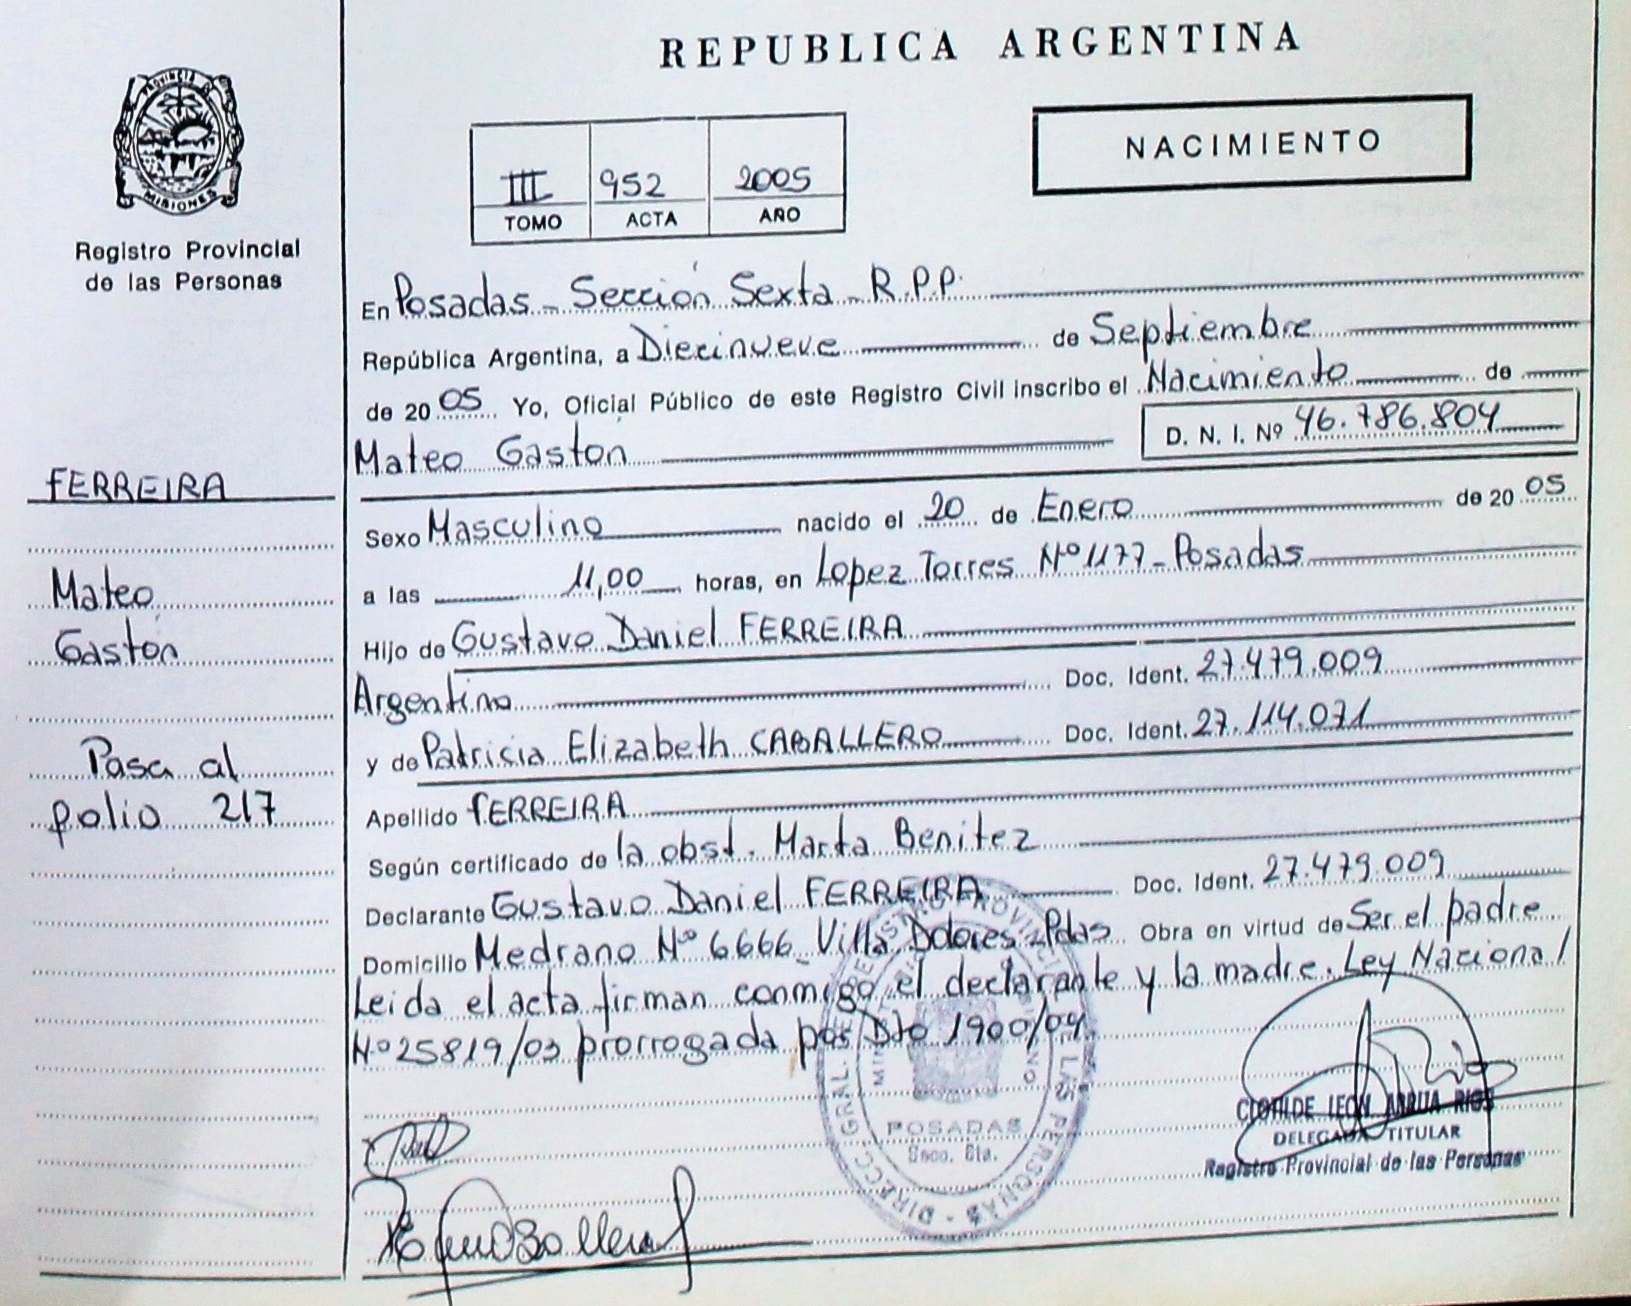 REPUBLICA ARGENTINA
PROVINCIA DE
MISIONES
Registro Provincial
de las Personas
NACIMIENTO
III 952 2005
TOMO ACTA AÑO
En Posadas - Sección Sexta - R.P.P.
República Argentina, a Diecinueve de Septiembre
de 20 05 Yo, Oficial Público de este Registro Civil inscribo el Nacimiento de
Mateo Gaston D. N. I. Nº 46.786.804
FERREIRA
Mateo
Gastón
Pasa al
folio 217
Sexo Masculino nacido el 20 de Enero de 20 05
a las 11,00 horas, en Lopez Torres Nº 1177 - Posadas
Hijo de Gustavo Daniel FERREIRA
Argentino Doc. Ident. 27.479.009
y de Patricia Elizabeth CABALLERO Doc. Ident. 27.114.071
Apellido FERREIRA
Según certificado de la obst. Marta Benitez
Declarante Gustavo Daniel FERREIRA Doc. Ident. 27.479.009
Domicilio Medrano Nº 6666 Villa Dolores - Pdas Obra en virtud de Ser el padre
Leida el acta firman conmigo el declarante y la madre. Ley Nacional
Nº 25819/03 prorrogada por Dto 1900/04.
POSADAS
Secc. 6ta.
CLOTILDE LEON RIOS
DELEGADA TITULAR
Registro Provincial de las Personas